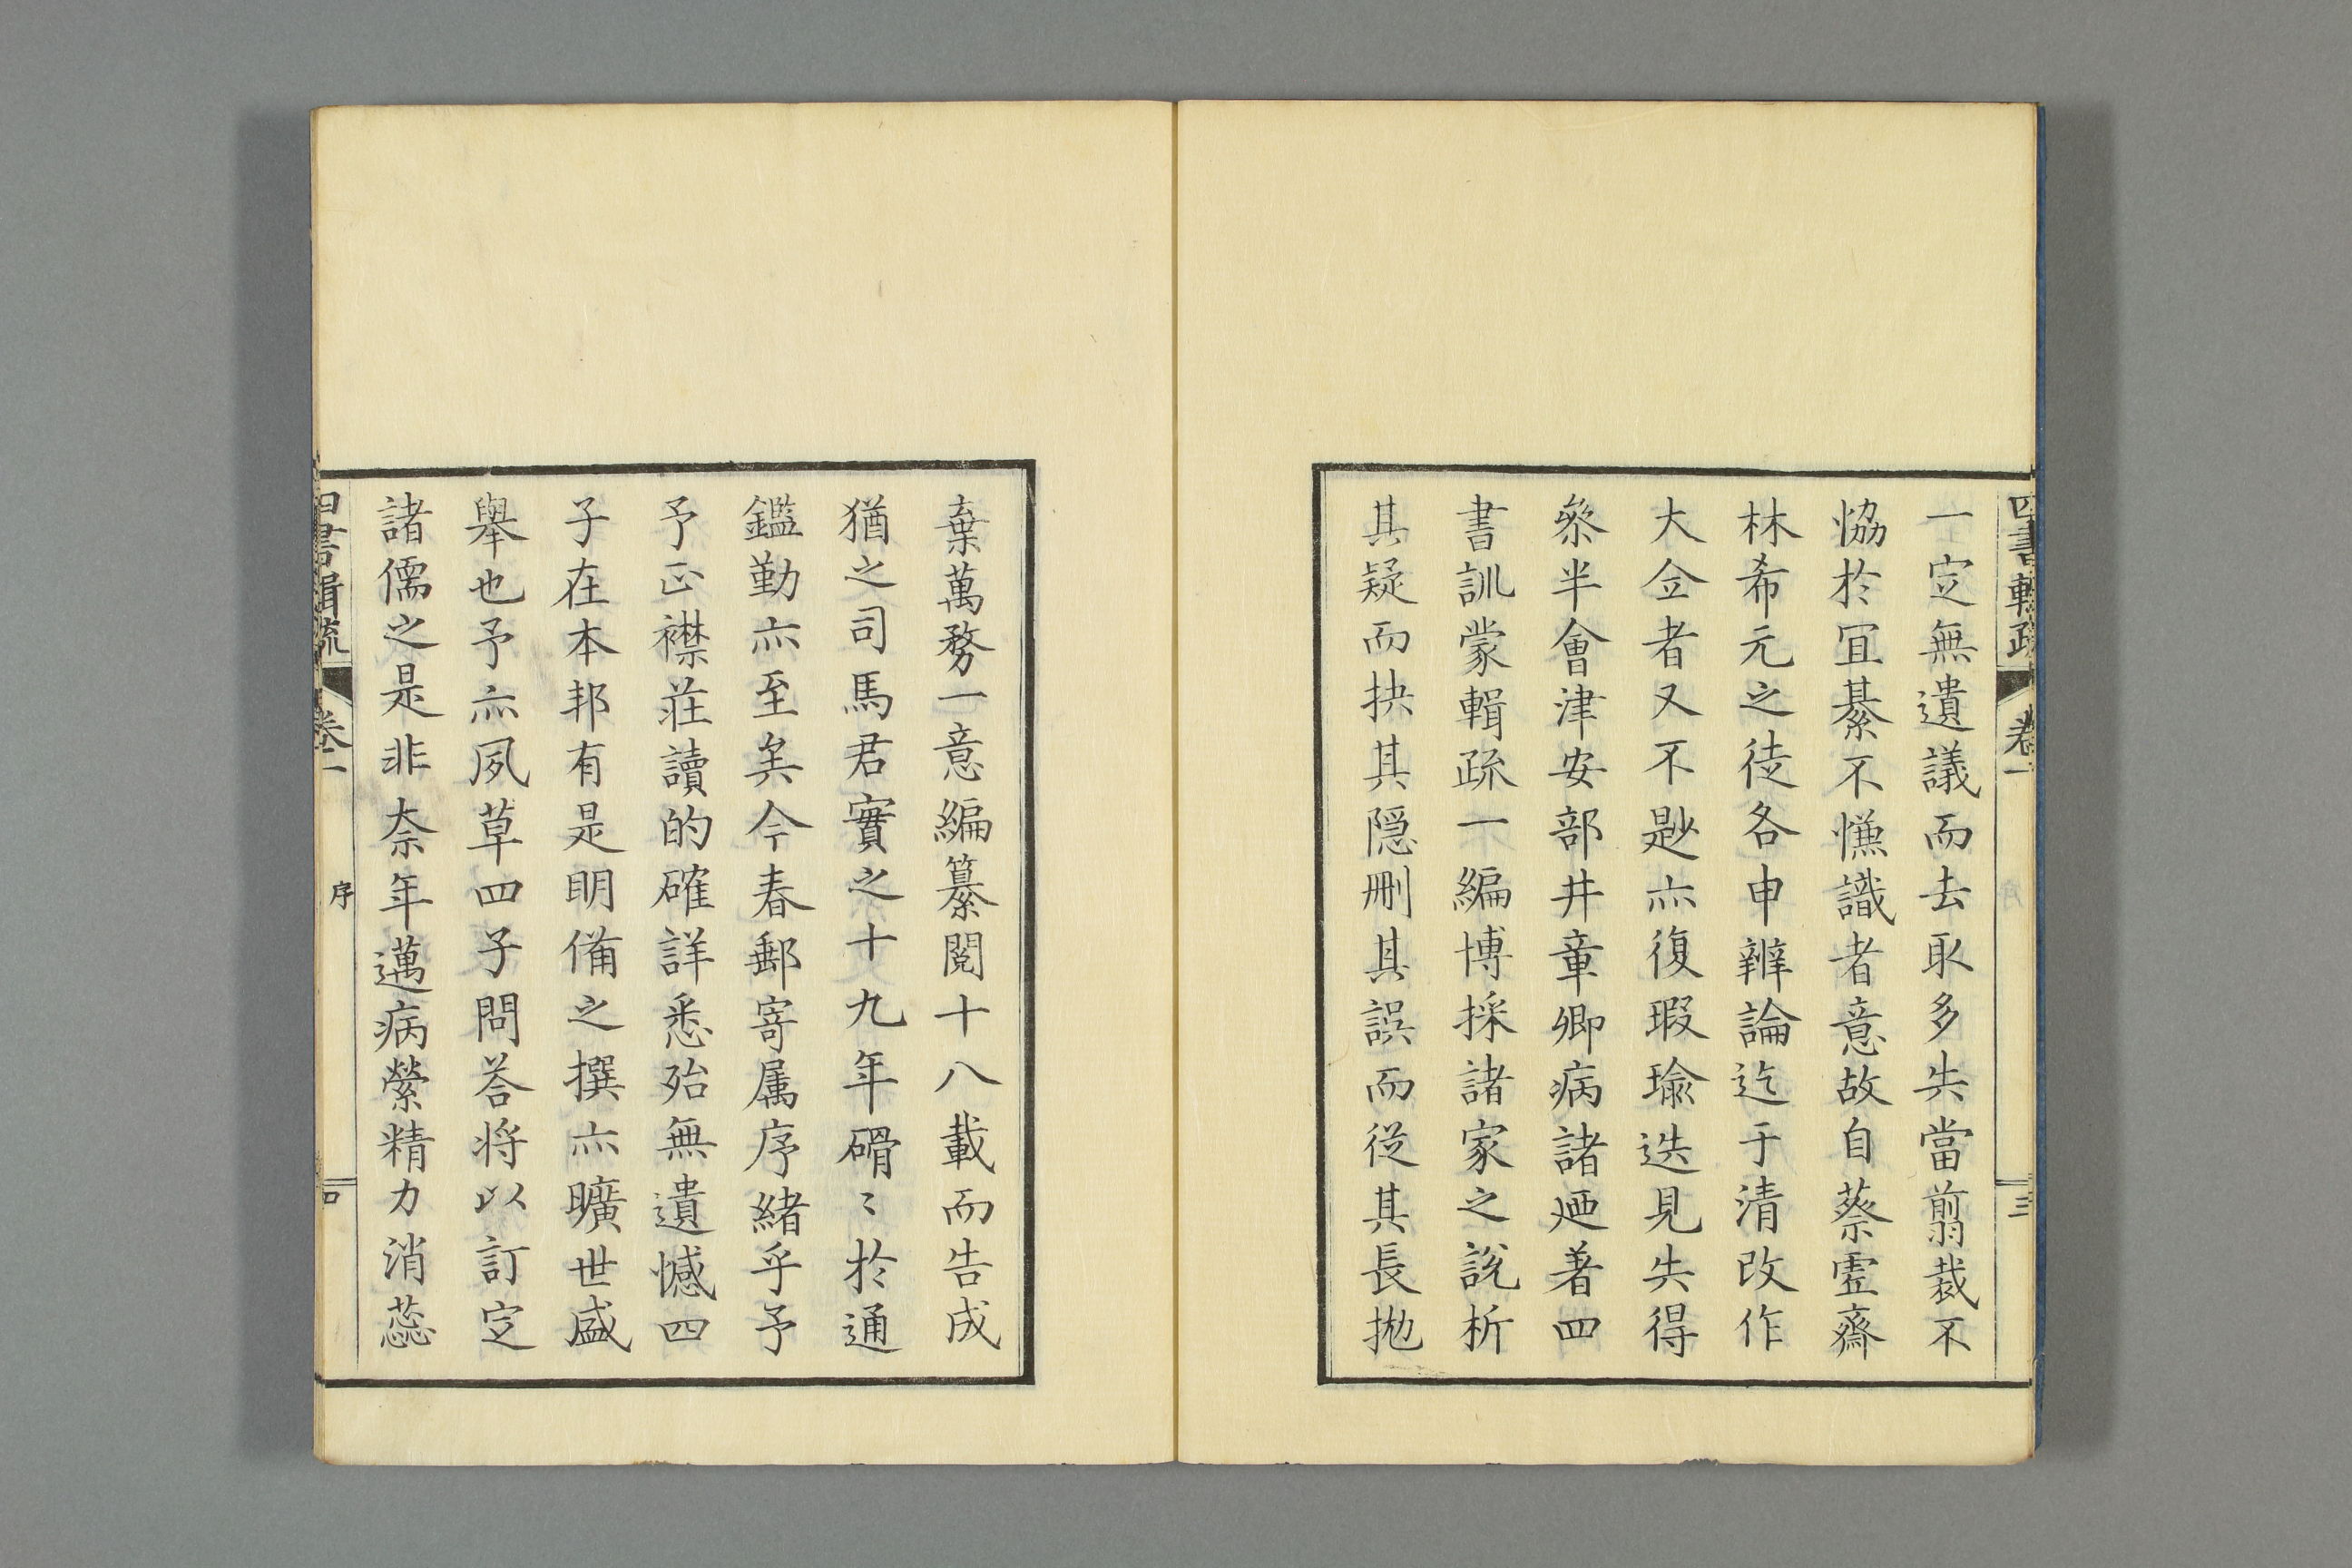 四書輯疏 卷一 三
一定無遺議而去取多失當翦裁不
恊於宜綦不慊識者意故自蔡虛齋
林希元之徒各申辨論迄于清改作
大全者又不尠亦復瑕瑜迭見失得
叅半會津安部井章卿病諸廼著四
書訓蒙輯疏一編博採諸家之說析
其疑而抉其隠刪其誤而從其長拋
棄萬務一意編纂閱十八載而告成
猶之司馬君實之十九年矻〻於通
鑑勤亦至矣今春郵寄属序緒乎予
予正襟莊讀的確詳悉殆無遺憾四
子在本邦有是明備之撰亦曠世盛
舉也予亦夙草四子問荅将以訂定
諸儒之是非柰年邁病縈精力消蕊
四書輯疏 卷一 序 四